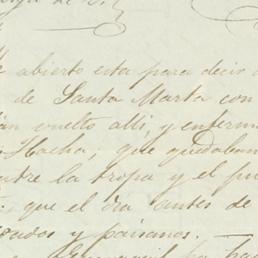 abierto esta para decir
de Santa Marta con
vuelto allí, y enferm
Hacha, que quedaban
tre la tropa y el pu
que el dia antes de
dados y paisanos.